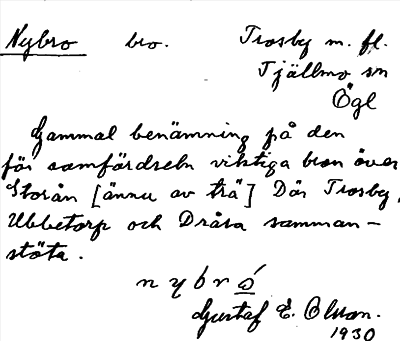 Nybro bro. Trosby m. fl.
Tjällmo sn
Ögl
Gammal benämning på den
för samfärdseln viktiga bron över
Storån [ännu av trä] Där Trosby,
Ubbetorp och Dråsa samman-
stöta.
n y b r ó
Gustaf E. Olsson.
1930